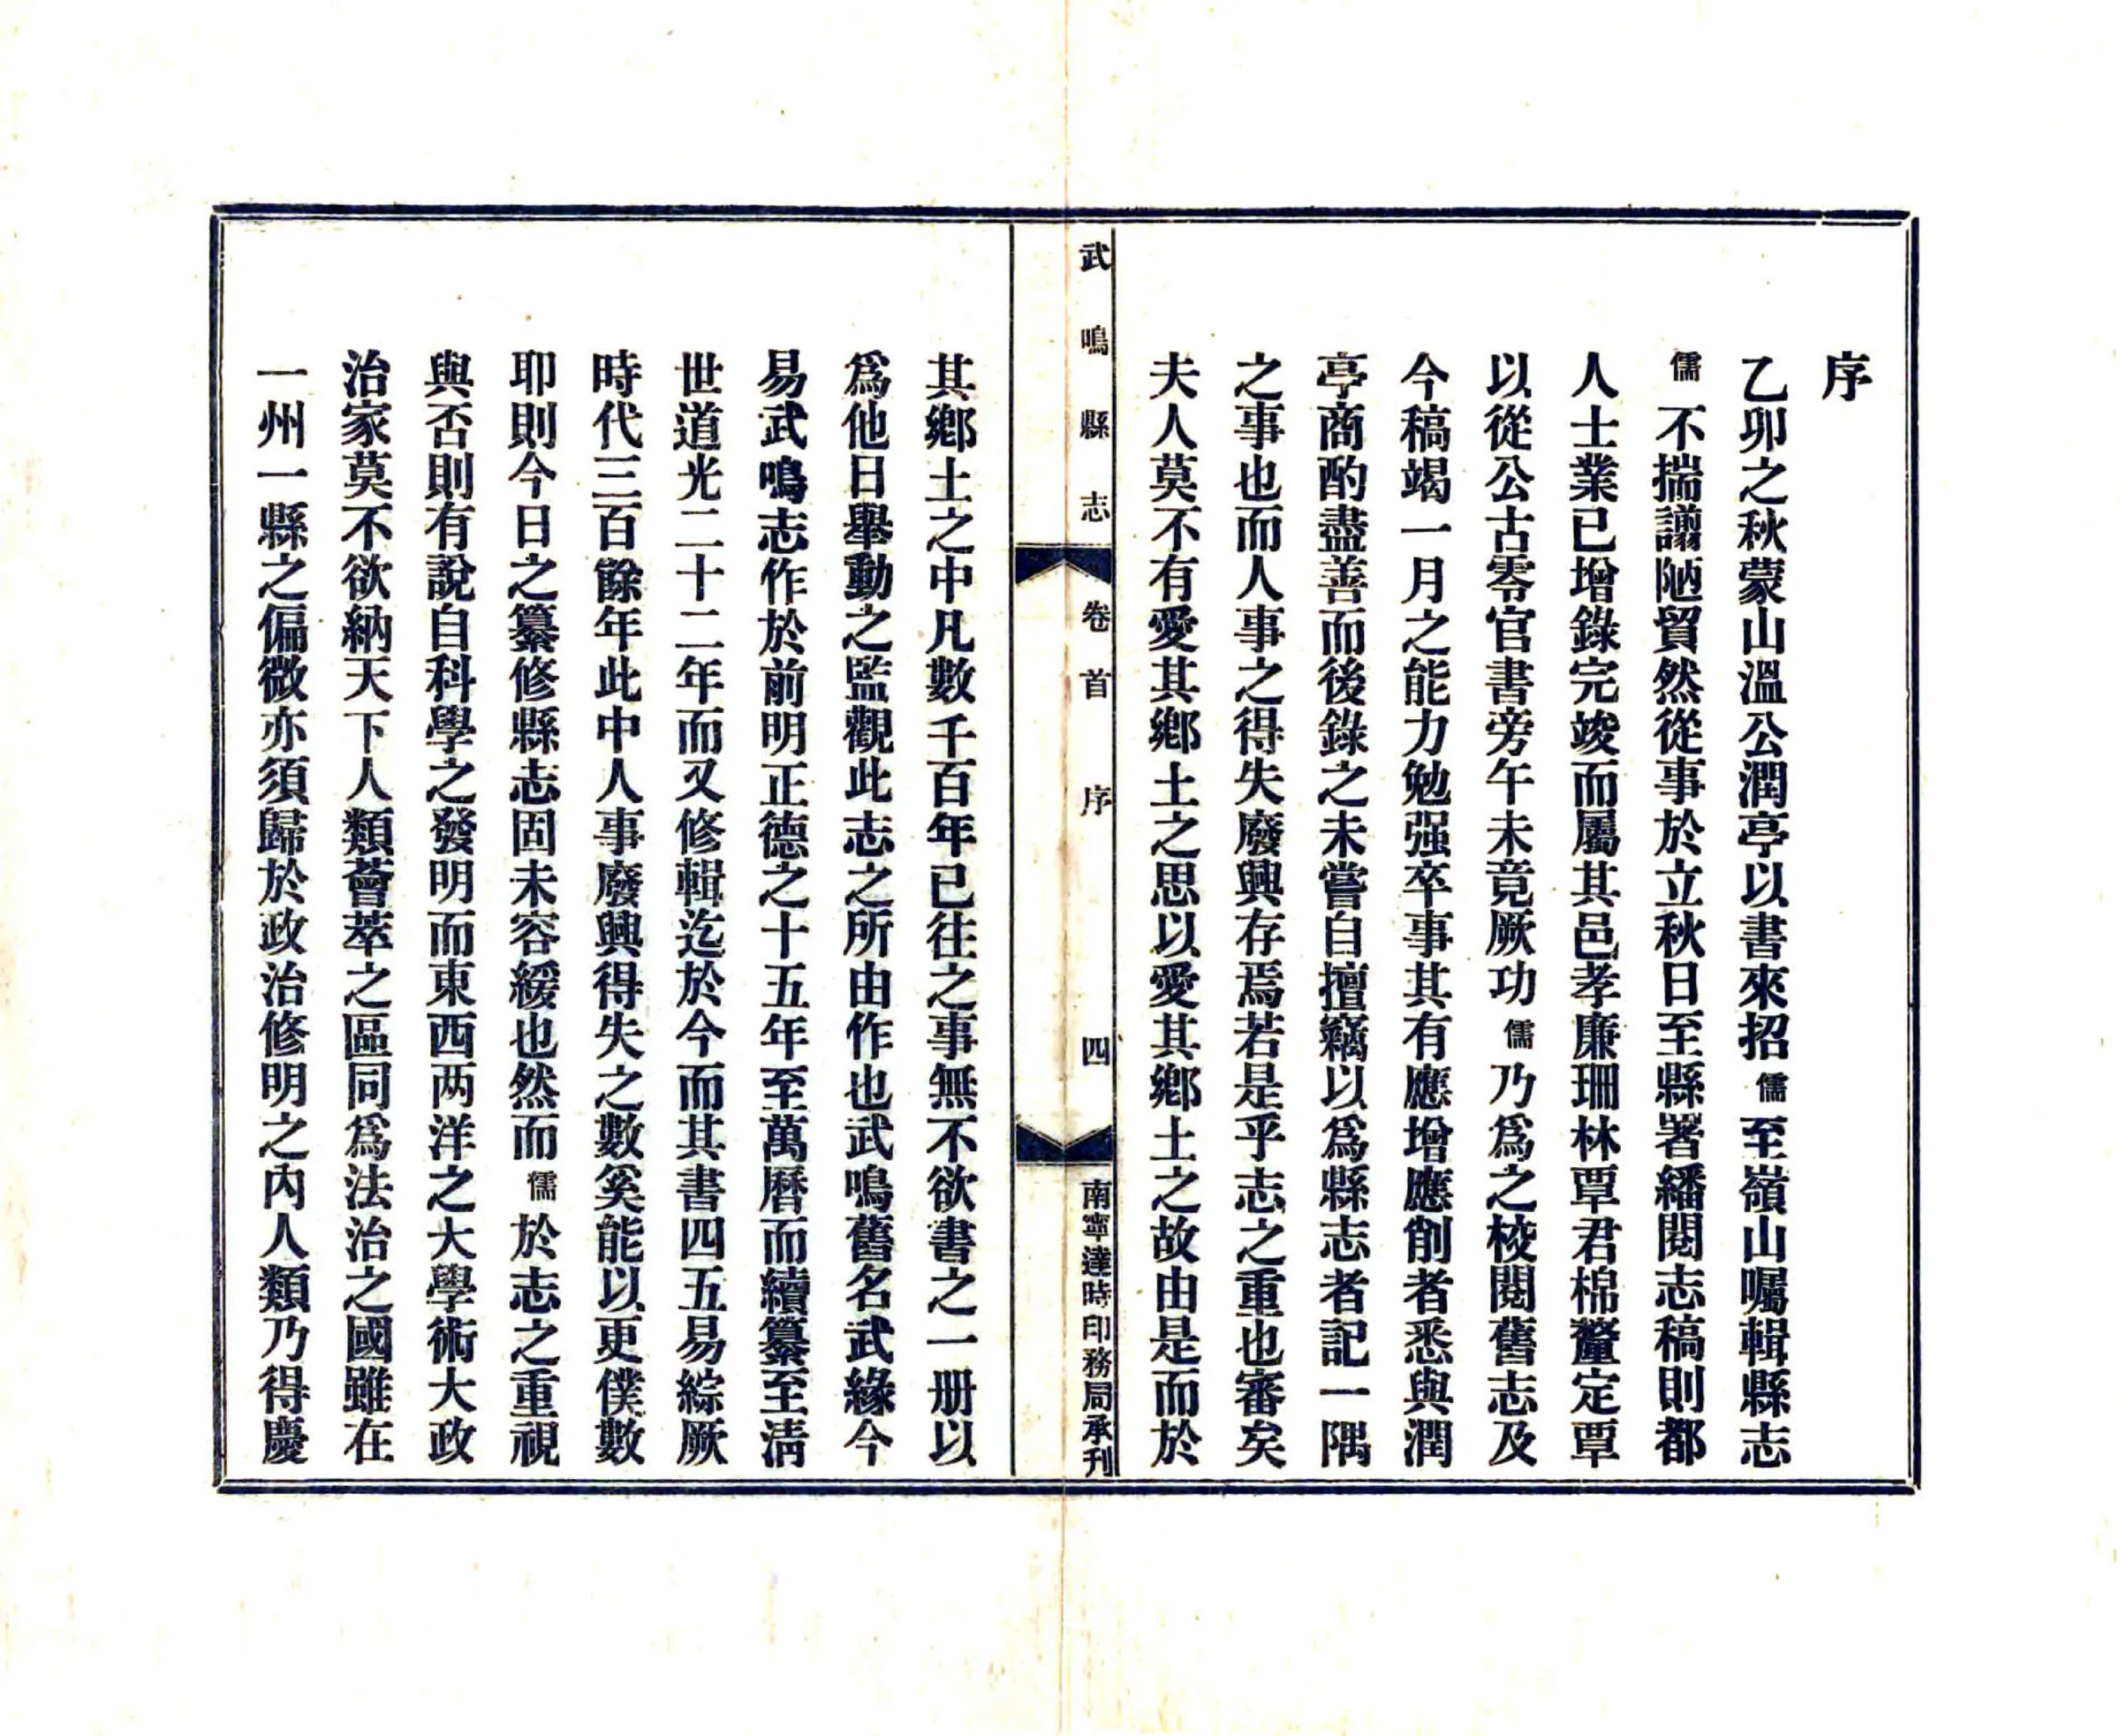 序
乙卯之秋蒙山溫公潤亭以書來招儒至嶺山囑輯縣志
儒不揣譾陋貿然從事於立秋日至縣署繙閱志稿則都
人士業已增錄完竣而屬其邑孝廉珊林覃君棉釐定覃
以從公古零官書旁午未竟厥功儒乃爲之校閱舊志及
今稿竭一月之能力勉强卒事其有應增應削者悉與潤
亭商酌盡善而後錄之未嘗自擅竊以爲縣志者記一隅
之事也而人事之得失廢興存焉若是乎志之重也審矣
夫人莫不有愛其鄉土之思以愛其鄉土之故由是而於
武鳴縣志 卷首 序 四 南寧達時印務局承刊
其鄉土之中凡數千百年已往之事無不欲書之一册以
爲他日舉動之監觀此志之所由作也武鳴舊名武緣今
易武鳴志作於前明正德之十五年至萬曆而續纂至清
世道光二十二年而又修輯迄於今而其書四五易綜厥
時代三百餘年此中人事廢興得失之數奚能以更僕數
耶則今日之纂修縣志固未容緩也然而儒於志之重視
與否則有說自科學之發明而東西两洋之大學術大政
治家莫不欲納天下人類薈萃之區同爲法治之國雖在
一州一縣之偏微亦須歸於政治修明之內人類乃得慶